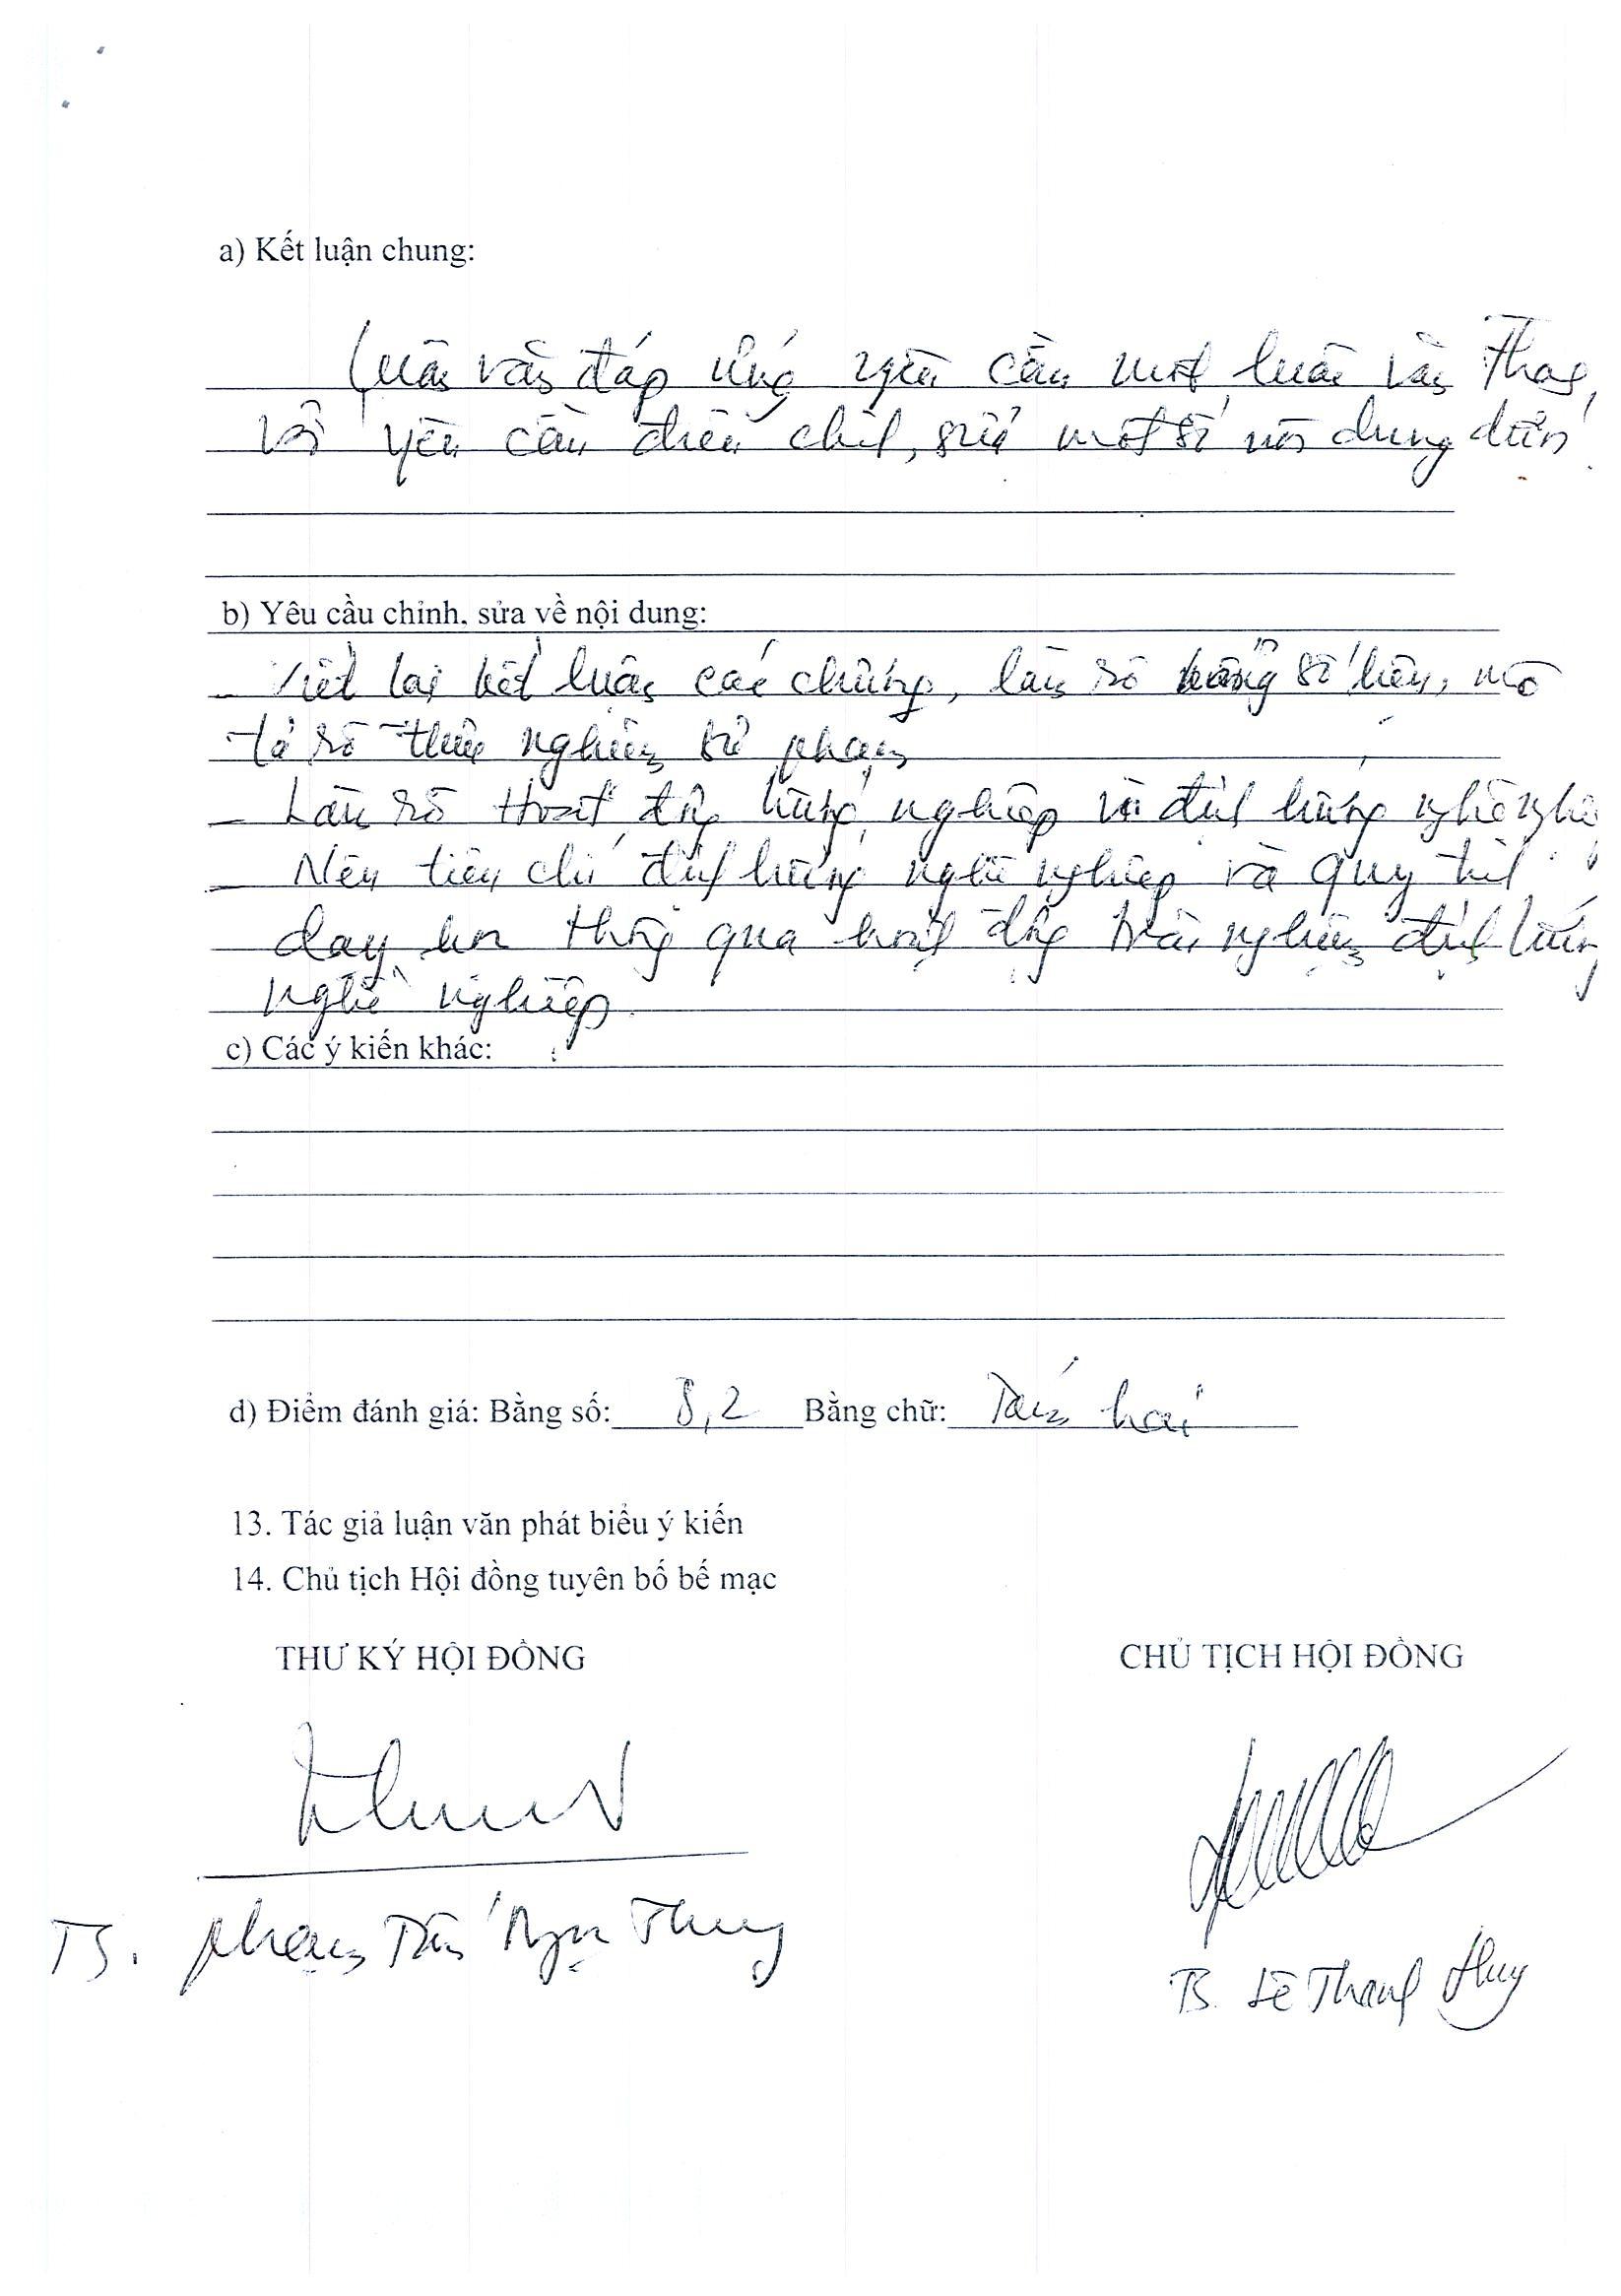 a) Kết luận chung:
Luận văn đáp ứng yêu cầu một luận văn Thạc
với yêu cầu điều chỉnh, sửa một số nội dung dưới
b) Yêu cầu chỉnh, sửa về nội dung:
- Viết lại kết luận các chương, làm rõ bảng số liệu, mô
tả rõ thực nghiệm sư phạm
- Làm rõ Hoạt động hướng nghiệp và định hướng nghề nghiệ
- Nêu tiêu chí định hướng nghề nghiệp và quy trình
dạy học thông qua hoạt động trải nghiệm định hướng
nghề nghiệp.
c) Các ý kiến khác:
d) Điểm đánh giá: Bằng số: 8,2 Bằng chữ: Tám hai
13. Tác giả luận văn phát biểu ý kiến
14. Chủ tịch Hội đồng tuyên bố bế mạc
THƯ KÝ HỘI ĐỒNG CHỦ TỊCH HỘI ĐỒNG
TS. Phạm Tấn Ngọc Thụy
TS. Lê Thanh Huy